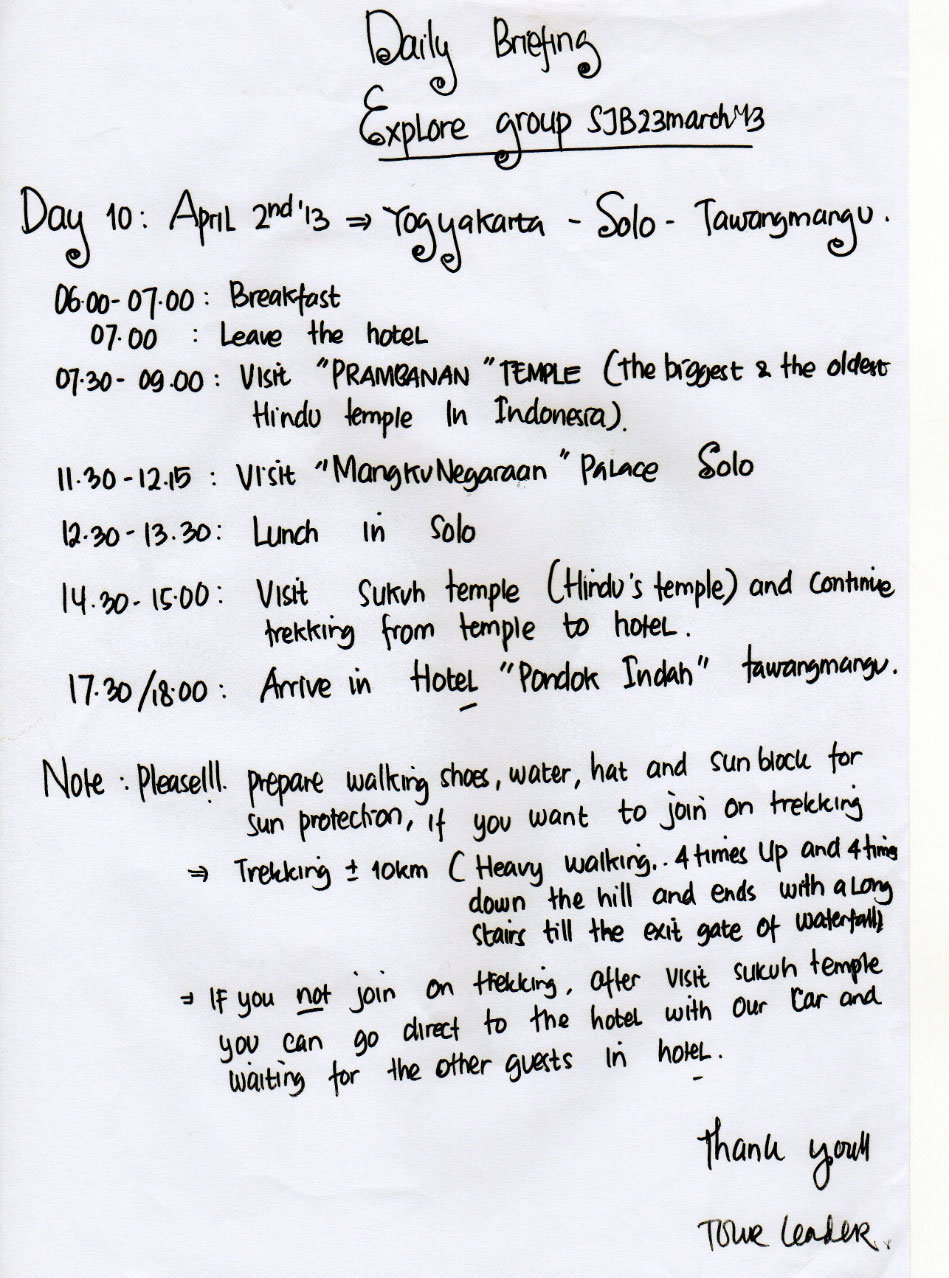 Daily Briefing
Explore group SJB23march'13
Day 10: April 2nd '13 ⇒ Yogyakarta - Solo - Tawangmangu.
06.00-07.00 : Breakfast
07.00 : Leave the hotel
07.30 - 09.00 : Visit "PRAMBANAN" TEMPLE (the biggest & the oldest
Hindu temple In Indonesia).
11.30 - 12.15 : Visit "MangkuNegaraan" Palace Solo
12.30 - 13.30 : Lunch in Solo
14.30 - 15.00 : Visit Sukuh temple (Hindu's temple) and continue
trekking from temple to hotel.
17.30/18.00 : Arrive in Hotel "Pondok Indah" tawangmangu.
Note : Please!!!. prepare walking shoes, water, hat and sun block for
sun protection, if you want to join on trekking
⇒ Trekking ± 10km (Heavy walking.. 4 times up and 4 times
down the hill and ends with a long
stairs till the exit gate of waterfall)
⇒ If you not join on trekking, after visit sukuh temple
you can go direct to the hotel with our car and
waiting for the other guests in hotel.
Thank you!!
Tour Leader..